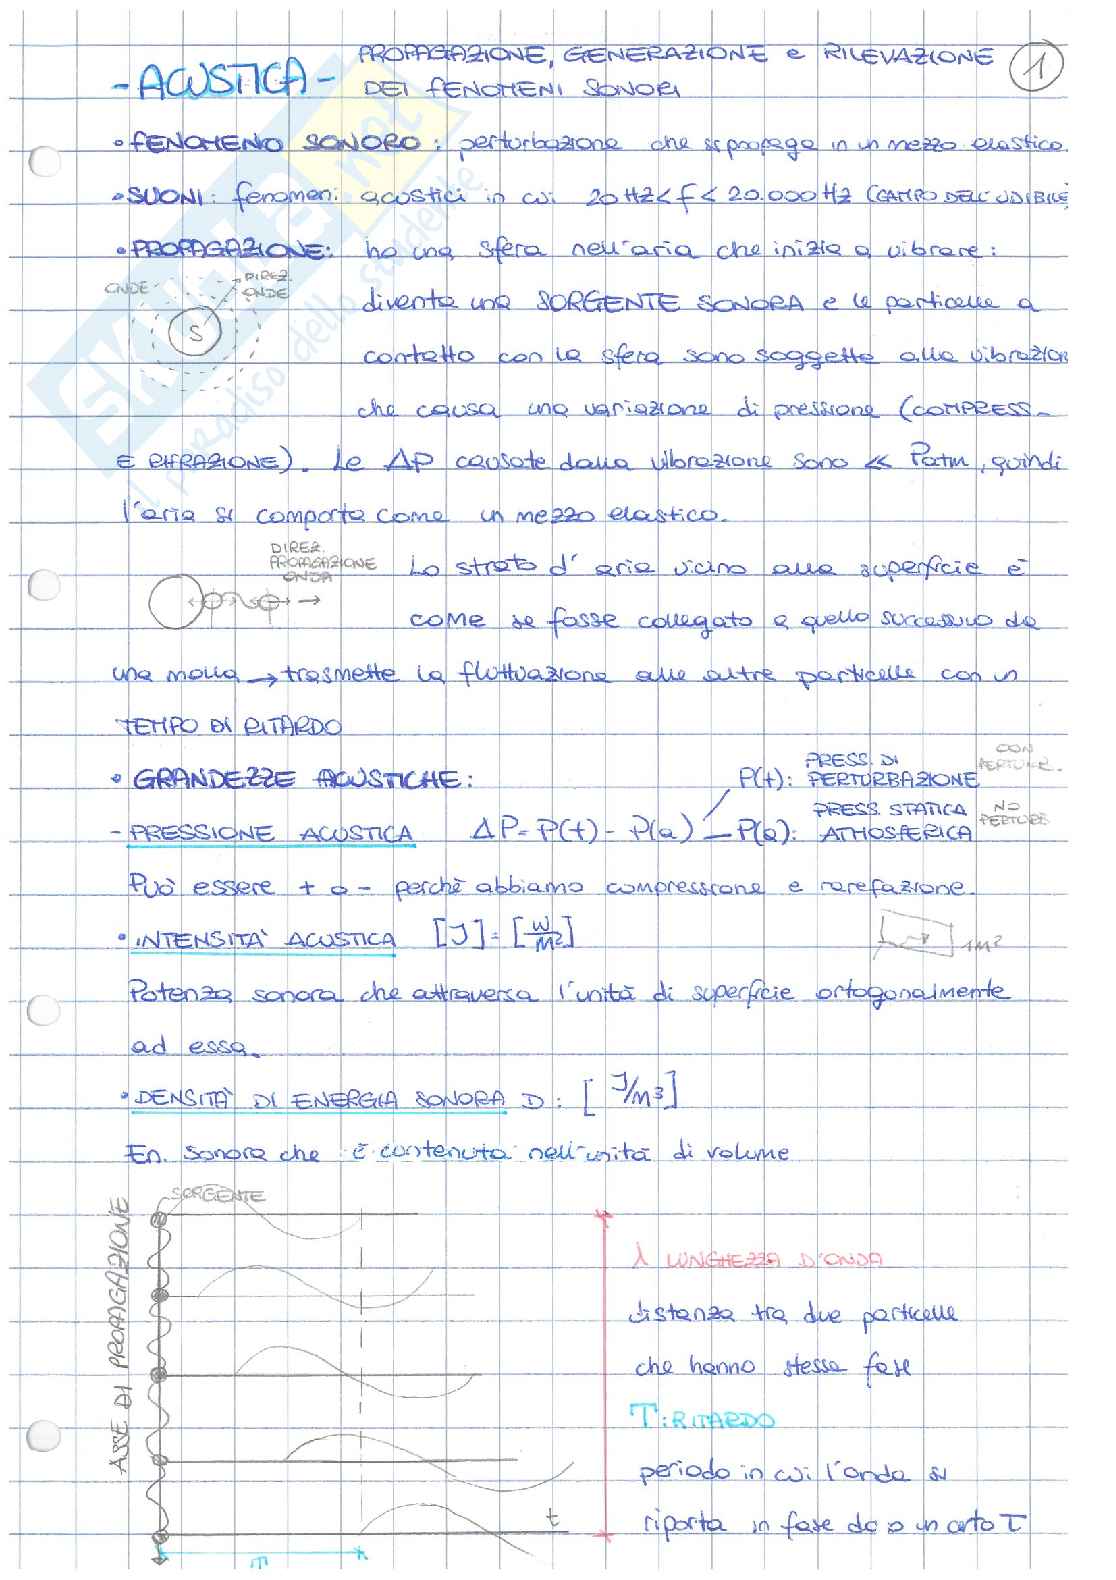 - ACUSTICA - PROPAGAZIONE, GENERAZIONE e RILEVAZIONE DEI FENOMENI SONORI 1
• FENOMENO SONORO: perturbazione che si propaga in un mezzo elastico.
• SUONI: fenomeni acustici in cui 20 Hz < f < 20.000 Hz (CAMPO DELL'UDIBILE)
• PROPAGAZIONE: ho una sfera nell'aria che inizia a vibrare:
ONDE DIREZ. ONDE
S
diventa una SORGENTE SONORA e le particelle a
contatto con la sfera sono soggette alla vibrazion
che causa una variazione di pressione (COMPRESS-
E RIFRAZIONE). Le ΔP causate dalla vibrazione sono << Patm, quindi
l'aria si comporta come un mezzo elastico.
DIREZ. PROPAGAZIONE ONDA
Lo strato d'aria vicino alla superficie è
come se fosse collegato a quello successivo da
una molla → trasmette la fluttuazione alle altre particelle con un
TEMPO DI RITARDO
• GRANDEZZE ACUSTICHE:
P(t): PRESS. DI PERTURBAZIONE CON PERTURB.
- PRESSIONE ACUSTICA ΔP = P(t) - P(a) P(a): PRESS. STATICA ATMOSFERICA NO PERTURB
Può essere + o - perchè abbiamo compressione e rarefazione.
• INTENSITA' ACUSTICA [J] = [W/m²] 1m²
Potenza sonora che attraversa l'unità di superficie ortogonalmente
ad essa.
• DENSITÀ DI ENERGIA SONORA D: [J/m³]
En. sonora che è contenuta nell'unità di volume
SORGENTE
ASSE DI PROPAGAZIONE
λ LUNGHEZZA D'ONDA
distanza tra due particelle
che hanno stessa fase
T: RITARDO
periodo in cui l'onda si
riporta in fase dopo un certo T
t
T
SKUOLA.net
il paradiso dello studente